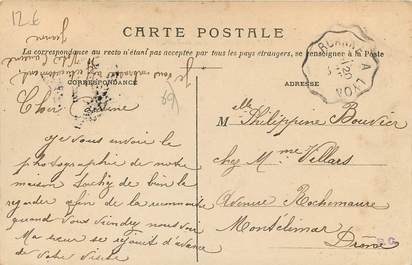 12 €
CARTE POSTALE
La correspondance au recto n'étant pas acceptée par tous les pays étrangers, se renseigner à la Poste
CORRESPONDANCE
ADRESSE
ROANNE A LYON
Je
vous embrasse
Jeanne
69
Chère
Je vous envoie la
photographie de notre
maison tachez de bien la
regarder afin de la reconnaître
quand vous viendrez nous voir
Ma sœur se réjouit d'avance
de votre visite
Melle Philippine Bouvier
chez Mme Villars
Avenue Rochemaure
Montélimar
Drôme